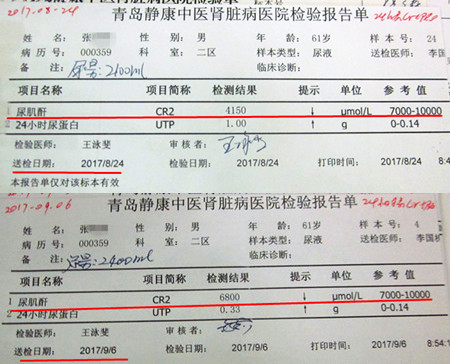 2017-08-24
青岛静康中医肾脏病医院检验报告单
姓 名: 张 性 别: 男 年 龄: 61岁 样 本 号: 24
病 历 号: 000359 科 室: 二区 样本类型: 尿液 送检医师: 李国
备 注: 尿量:2100ml 临床诊断:
项目名称 项目简称 检测结果 提示 单位 参 考 值
1 尿肌酐 CR2 4150 ↓ μmol/L 7000-10000
2 24小时尿蛋白 UTP 1.00 ↑ g 0-0.14
检验医师: 王泳斐 审 核 者:
送检日期: 2017/8/24 检验日期: 2017/8/24 打印时间: 2017/8/24 8:4
本报告单仅对该标本有效
2017.09.06
青岛静康中医肾脏病医院检验报告单
姓 名: 张 性 别: 男 年 龄: 61岁 样 本 号: 4
病 历 号: 000359 科 室: 二区 样本类型: 尿液 送检医师: 李国
备 注: 尿量:2400ml 临床诊断:
项目名称 项目简称 检测结果 提示 单位 参 考 值
1 尿肌酐 CR2 6800 ↓ μmol/L 7000-10000
2 24小时尿蛋白 UTP 0.33 ↑ g 0-0.14
检验医师: 王泳斐 审 核 者:
送检日期: 2017/9/6 检验日期: 2017/9/6 打印时间: 2017/9/6 8:54: